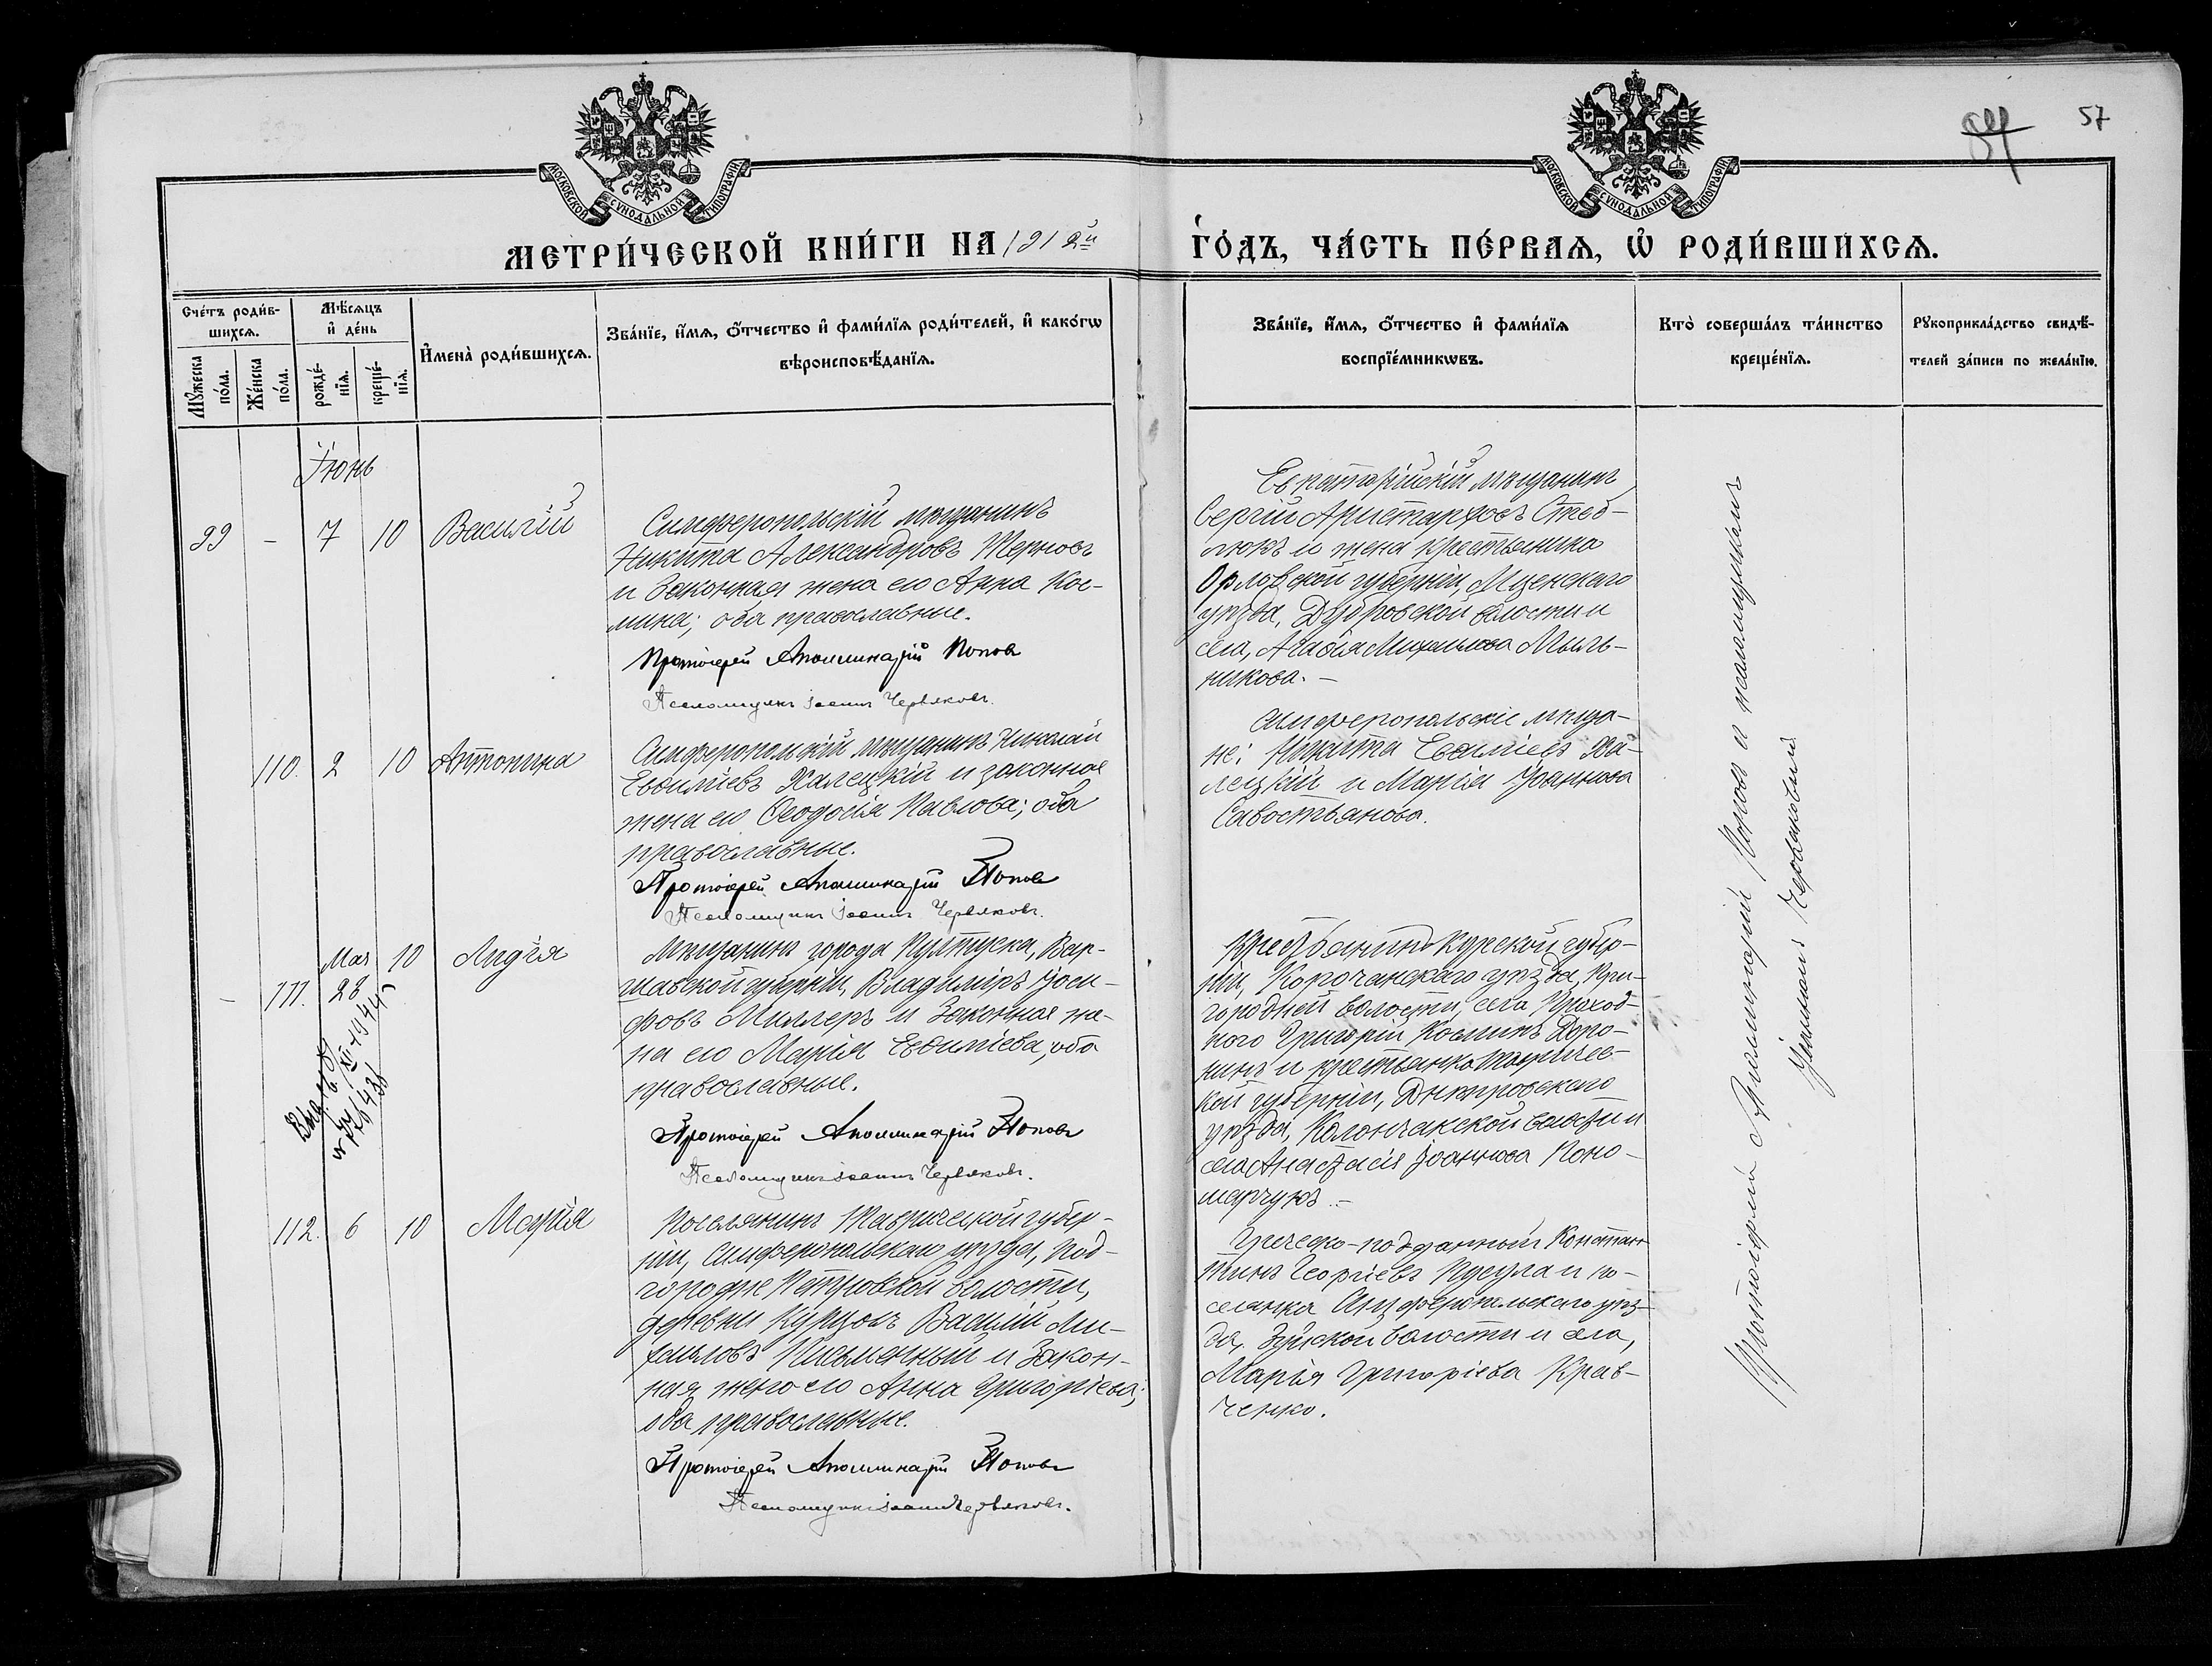 57
МОСКОВСКОЙ СѴНОДАЛЬНОЙ ТИПОГРАФІИ
МОСКОВСКОЙ СѴНОДАЛЬНОЙ ТИПОГРАФІИ
МЕТРИ́ЧЕСКОЙ КНИ́ГИ НА 1912й
ГО́ДЪ, ЧА́СТЬ ПЕ́РВАѦ, Ѡ҆ РОДИ́ВШИХСѦ.
Сче́тъ роди́в-
шихсѧ.
Мꙋ́жеска по́ла.
Же́нска по́ла.
Мѣ́сѧцъ
и҆ де́нь
рожде́-
нїѧ.
креще́-
нїѧ.
И҆мена̀ роди́вшихсѧ.
Зва́нїе, и҆́мѧ, ѻ҆́тчество и҆ фами́лїѧ роди́телей, и҆ како́гѡ
вѣроисповѣ́данїѧ.
Зва́нїе, и҆́мѧ, ѻ҆́тчество и҆ фами́лїѧ
воспрїе́мникѡвъ.
Кто̀ соверша́лъ та́инство
креще́нїѧ.
Рꙋкоприкла́дство свидѣ́-
телей за́писи по жела́нїю.
Іюнь
99 - 7 10 Василій
Симферопольскій мѣщанинъ
Никита Александровъ Терновъ
и Законная жена его Анна Кос-
мина; оба православные.
Протоіерей Аполлинарій Попов
Псаломщикъ Іоаннъ Червяковъ.
Евпаторійскій мѣщанинъ
Сергій Аристарховъ Стеб-
люкъ и жена крестьянина
Орловской губерніи, Мценскаго
уѣзда, Дубровской волости и
села, Агафія Михаилова Мыль-
никова. -
110. 2 10 Антонина
Симферопольскій мѣщанинъ Николай
Евѳиміевъ Халецкій и законная
жена его Ѳеодосія Павлова; оба
православные.
Протоіерей Аполлинарій Попов
Псаломщикъ Іоаннъ Червяковъ.
Симферопольскіе мѣща-
не: Никита Евѳиміевъ Ха-
лецкій и Марія Іоаннова
Савостьянова.
- 111. Мая 28 10 Лидія
Мѣщанинъ города Пултуска, Вар-
шавской губерніи, Владиміръ Іоси-
фовъ Миллеръ и Законная же-
на его Марія Евѳиміева, оба
православные.
Протоіерей Аполлинарій Попов
Псаломщикъ Іоаннъ Червяковъ.
Крестьянинъ Курской губер-
ніи, Корочанскаго уѣзда, При-
городней волости, села
Григорій Косминъ Доро-
нинъ и крестьянка Тавричес-
кой губерніи, Днѣпровскаго
уѣзда, Колончакской волости и
села Анастасія Іоаннова Поно-
марчукъ. -
1944
112. 6 10 Марія
Поселянинъ Таврической губер-
ніи, Симферопольскаго уѣзда, Под-
городне Петровской волости,
деревни Василій Ми-
хаиловъ Письменный и Закон-
ная жена его Анна Григоріева;
оба православные.
Протоіерей Аполлинарій Попов
Псаломщикъ Іоаннъ Червяковъ.
Греческо-подданный Констан-
тинъ Георгіевъ и по-
селянка Симферопольскаго уѣз-
да, Зуйской волости и села,
Марія Григоріева Крав-
ченко.
Протоіерей Аполлинарій Попов и псаломщикомъ
Іоанномъ Червяковымъ